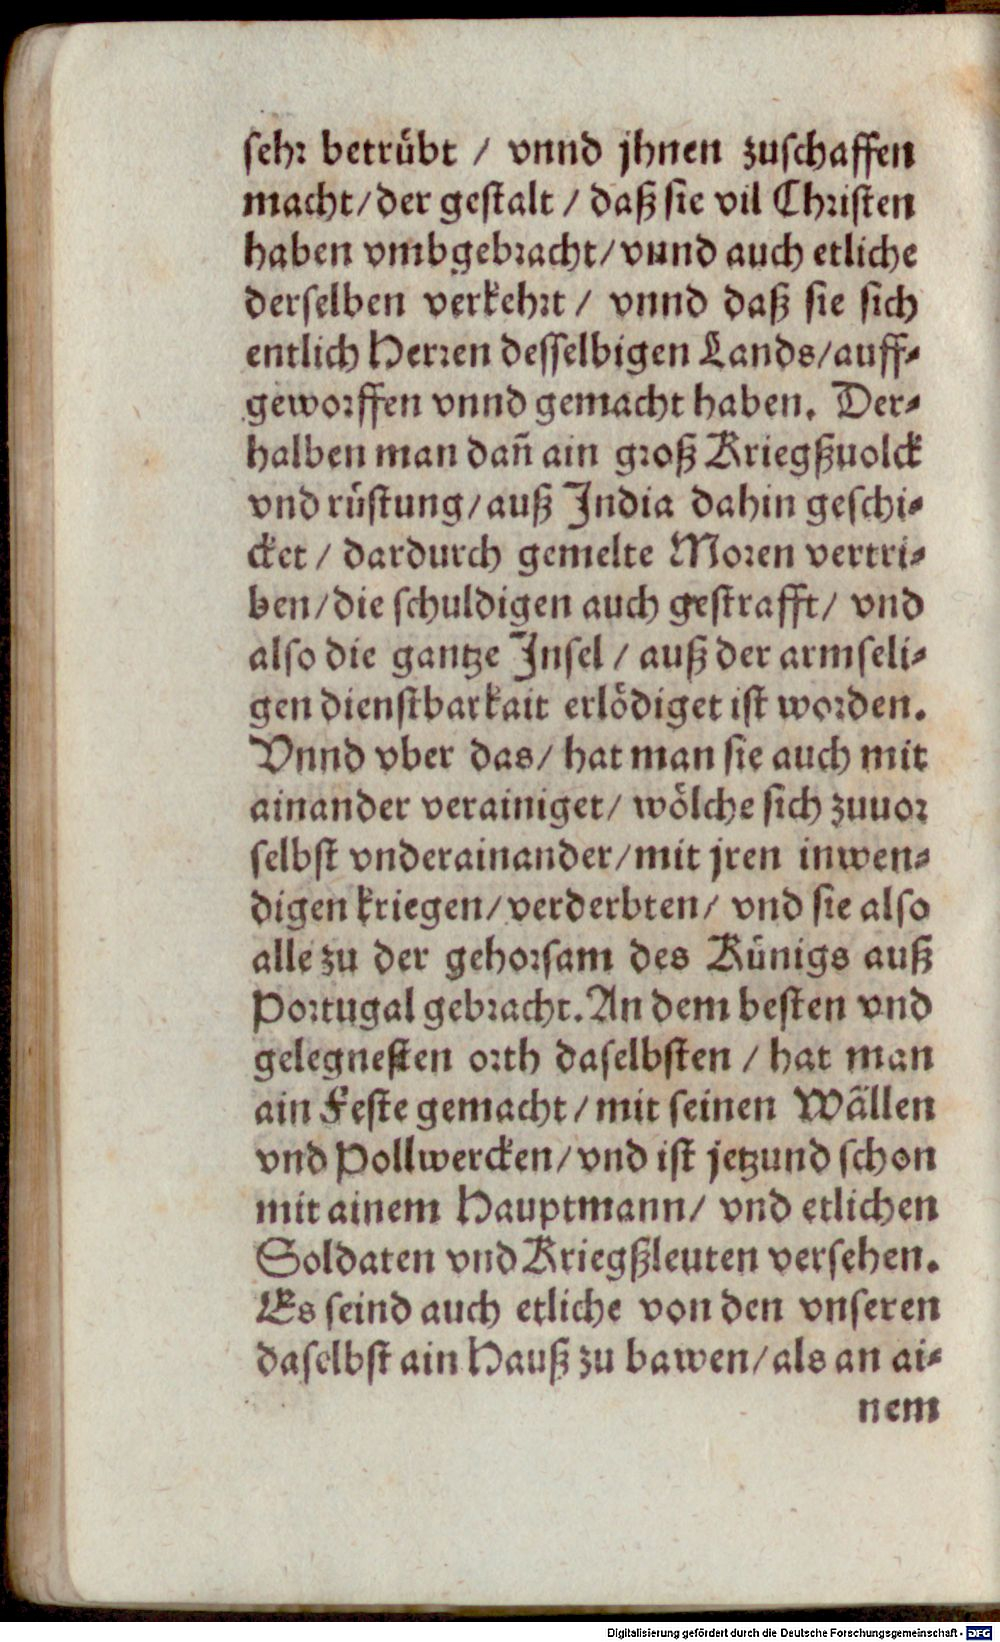 sehr betrübt / vnnd jhnen zuschaffen
macht/der gestalt / daß sie vil Christen
haben vmbgebracht/vnnd auch etliche
derselben verkehrt / vnnd daß sie sich
entlich Herren desselbigen Lands/auff⸗
geworffen vnnd gemacht haben. Der⸗
halben man dañ ain groß Kriegßuolck
vnd rüstung/auß India dahin geschi⸗
cket / dardurch gemelte Moren vertri⸗
ben/die schuldigen auch gestrafft/ vnd
also die gantze Insel / auß der armseli⸗
gen dienstbarkait erlödiget ist worden.
Vnnd vber das/ hat man sie auch mit
ainander verainiget/ wölche sich zuuor
selbst vnderainander/mit jren inwen⸗
digen kriegen/verderbten/ vnd sie also
alle zu der gehorsam des Künigs auß
Portugal gebracht. An dem besten vnd
gelegnesten orth daselbsten / hat man
ain Feste gemacht/mit seinen Wällen
vnd Pollwercken/vnd ist jetzund schon
mit ainem Hauptmann/ vnd etlichen
Soldaten vnd Kriegßleuten versehen.
Es seind auch etliche von den vnseren
daselbst ain Hauß zu bawen/als an ai⸗
nem
Digitalisierung gefördert durch die Deutsche Forschungsgemeinschaft - DFG